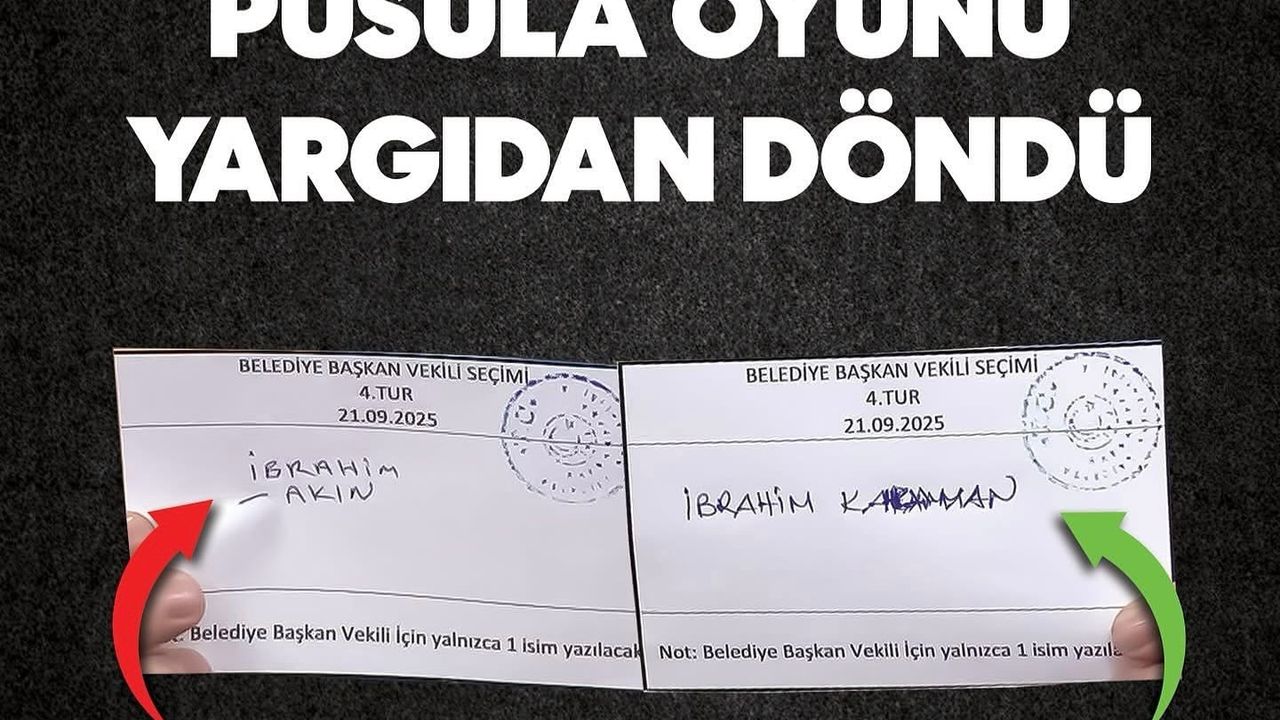 PUSULA OYUNU
YARGIDAN DÖNDÜ
BELEDİYE BAŞKAN VEKİLİ SEÇİMİ
4.TUR
21.09.2025
İBRAHİM
– AKIN
Belediye Başkan Vekili İçin yalnızca 1 isim yazılacak
BELEDİYE BAŞKAN VEKİLİ SEÇİMİ
4.TUR
21.09.2025
İBRAHİM
Not: Belediye Başkan Vekili İçin yalnızca 1 isim